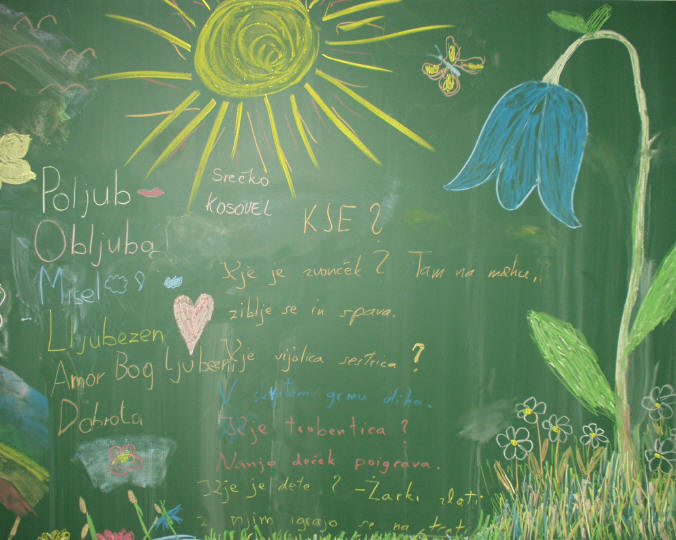 Poljub
Obljuba
Misel
Ljubezen
Amor Bog ljubezni
Dobrota
Srečko
KOSOVEL
KJE?
Kje je zvonček? Tam na mahu,
ziblje se in spava.
Kje vijolica sestrica?
V skritem grmu diha.
Kje trobentica?
Nanjo deček poigrava.
Kje je dete? - Žarki zlati
z njim igrajo se na